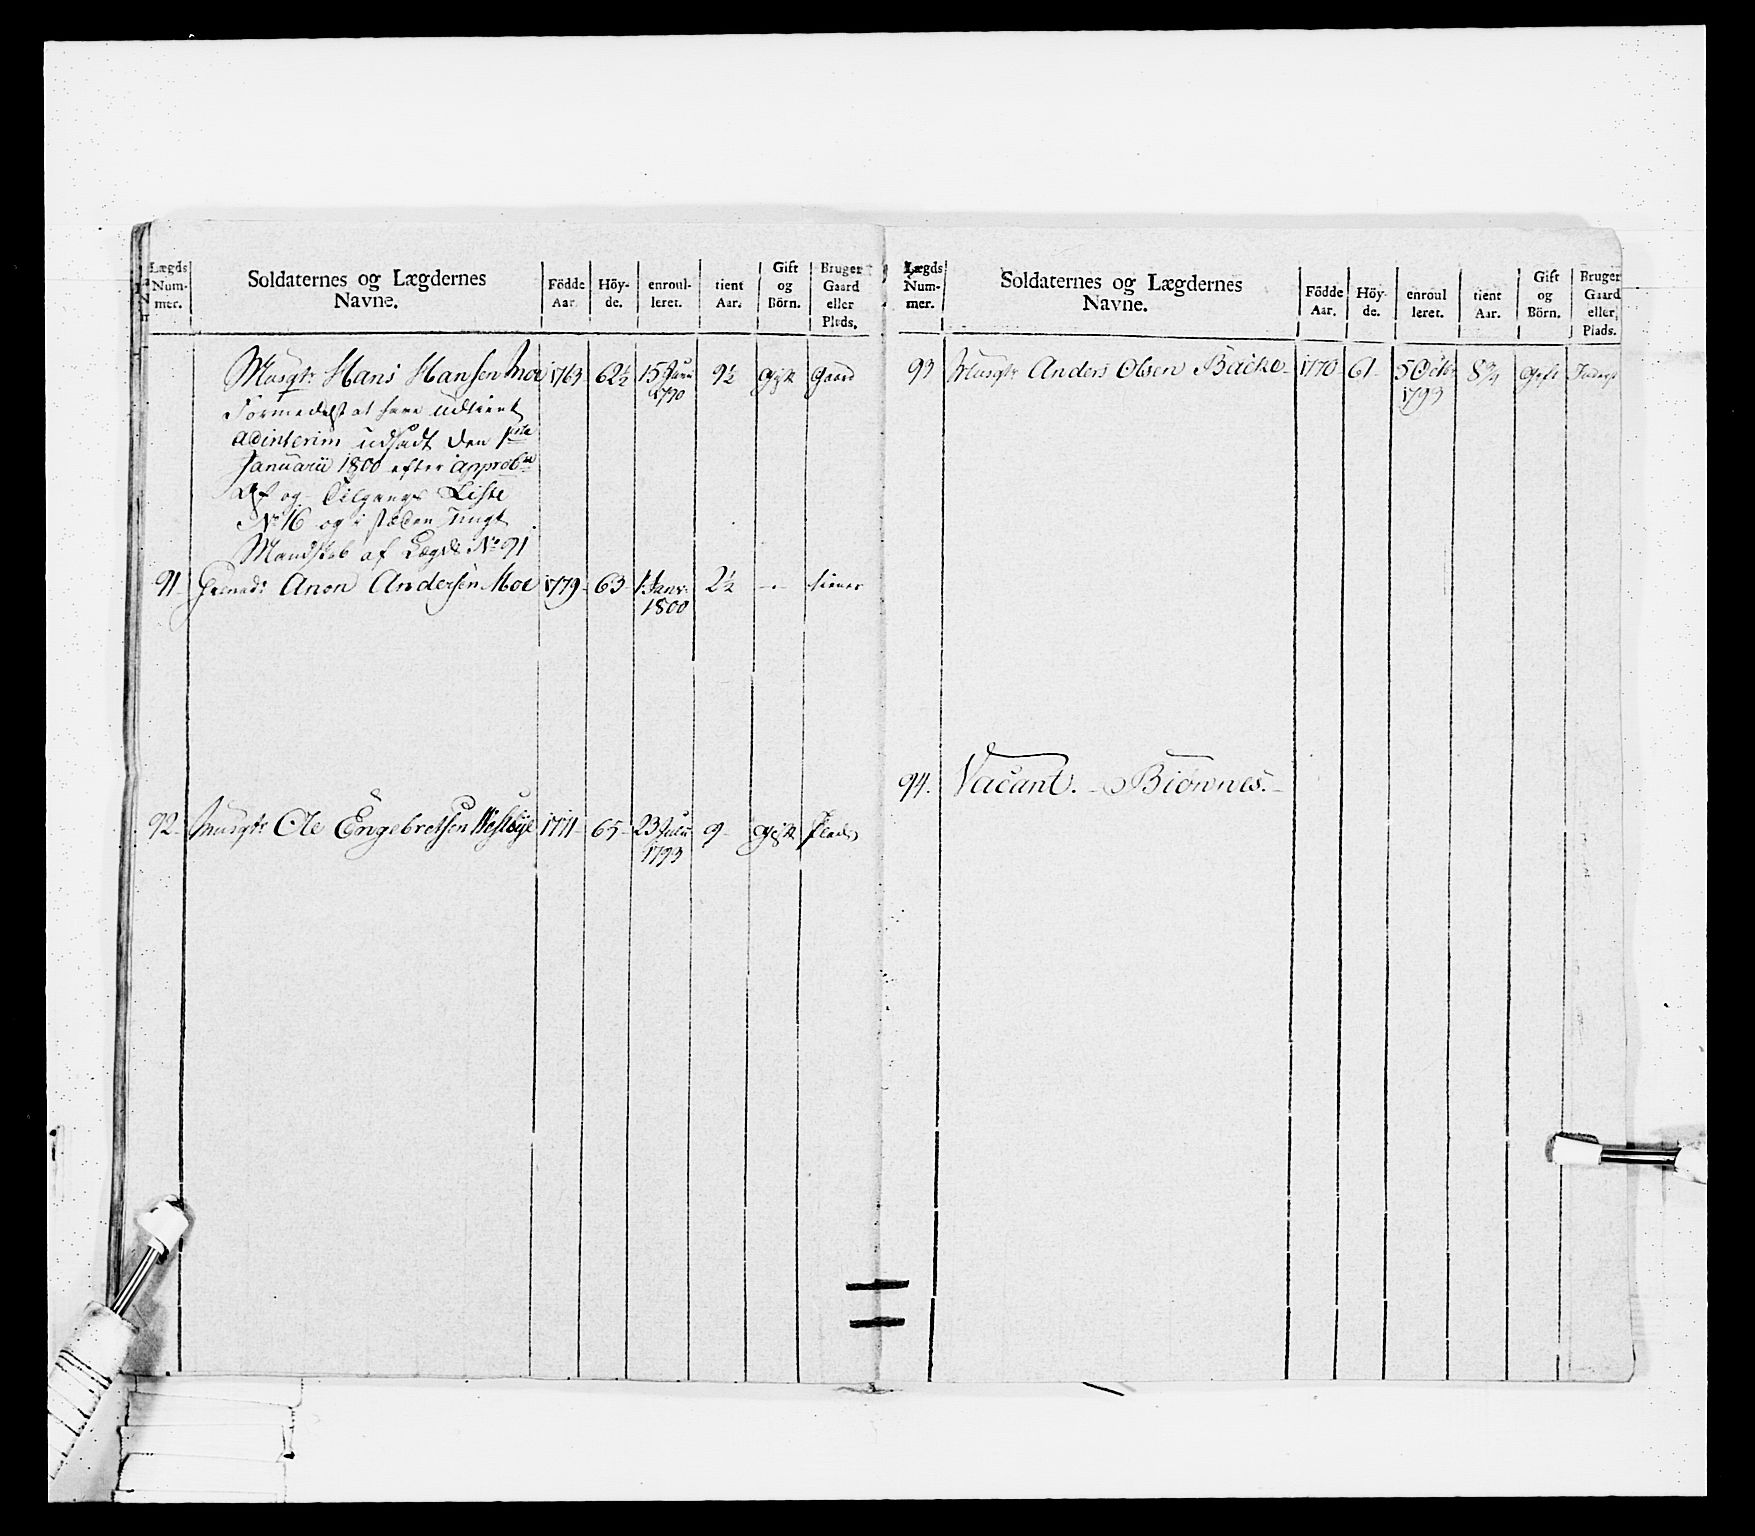 Lægds Num- mer. | Soldaternes og Lægdernes Navne. | Födde Aar. | Höy- de. | enroul- leret. | tient Aar. | Gift og Börn. | Bruger Gaard eller Plads.
Musqt: Hans Hansen Moe | 1763 | 62½ | 15 Junii 1790 | 9½ | Gift | Gaard
Formedelst at have udtient
adinterim udsadt den 1ste
Januarii 1800 efter approb:
Af og Tilgangs Liste
No 16 og i stæden Jungt
Mandskab af Lægd No 91
91 | Grenad: Anon Andersen Moe | 1779 | 63 | 1 Janv: 1800 | 2½ | - | tiener
92 | Musqt: Ole Engebretsen Westbye | 1771 | 65 | 23 Julii 1793 | 9 | Gift | Plads
Lægds Num- mer. | Soldaternes og Lægdernes Navne. | Födde Aar. | Höy- de. | enroul leret. | tient Aar. | Gift og Börn. | Bruger Gaard eller Plads.
93 | Musqt: Anders Olsen Backe | 1770 | 61 | 5 Octbr 1793 | 8¾ | Gift
94. | Vacant. - Biönnes.